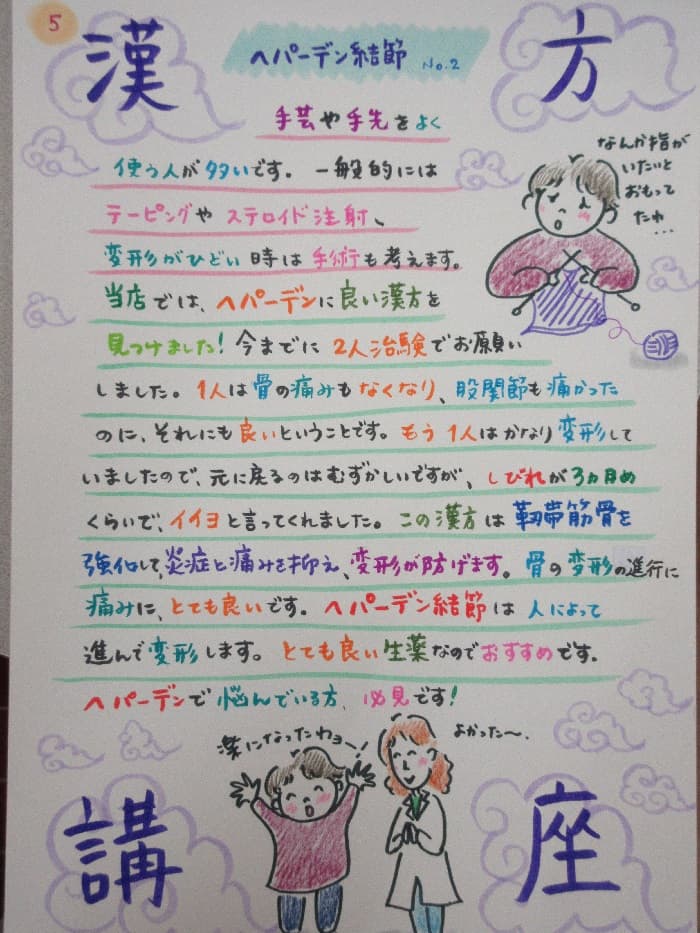 5
漢方
ヘパーデン結節 No.2
手芸や手先をよく
使う人が多いです。一般的には
テーピングやステロイド注射、
変形がひどい時は手術も考えます。
なんか指が
いたいと
おもって
たわ
...
当店では、ヘパーデンに良い漢方を
見つけました!今までに2人治験でお願い
しました。1人は骨の痛みもなくなり、股関節も痛かった
のに、それにも良いということです。もう1人はかなり変形して
いましたので、元に戻るのはむずかしいですが、しびれが3ヵ月め
くらいで、イイヨと言ってくれました。この漢方は靭帯筋骨を
強化して、炎症と痛みを抑え、変形が防げます。骨の変形の進行に
痛みに、とても良いです。ヘパーデン結節は人によって
進んで変形します。とても良い生薬なのでおすすめです。
ヘパーデンで悩んでいる方、必見です!
楽になったわョー!
よかった〜。
講座